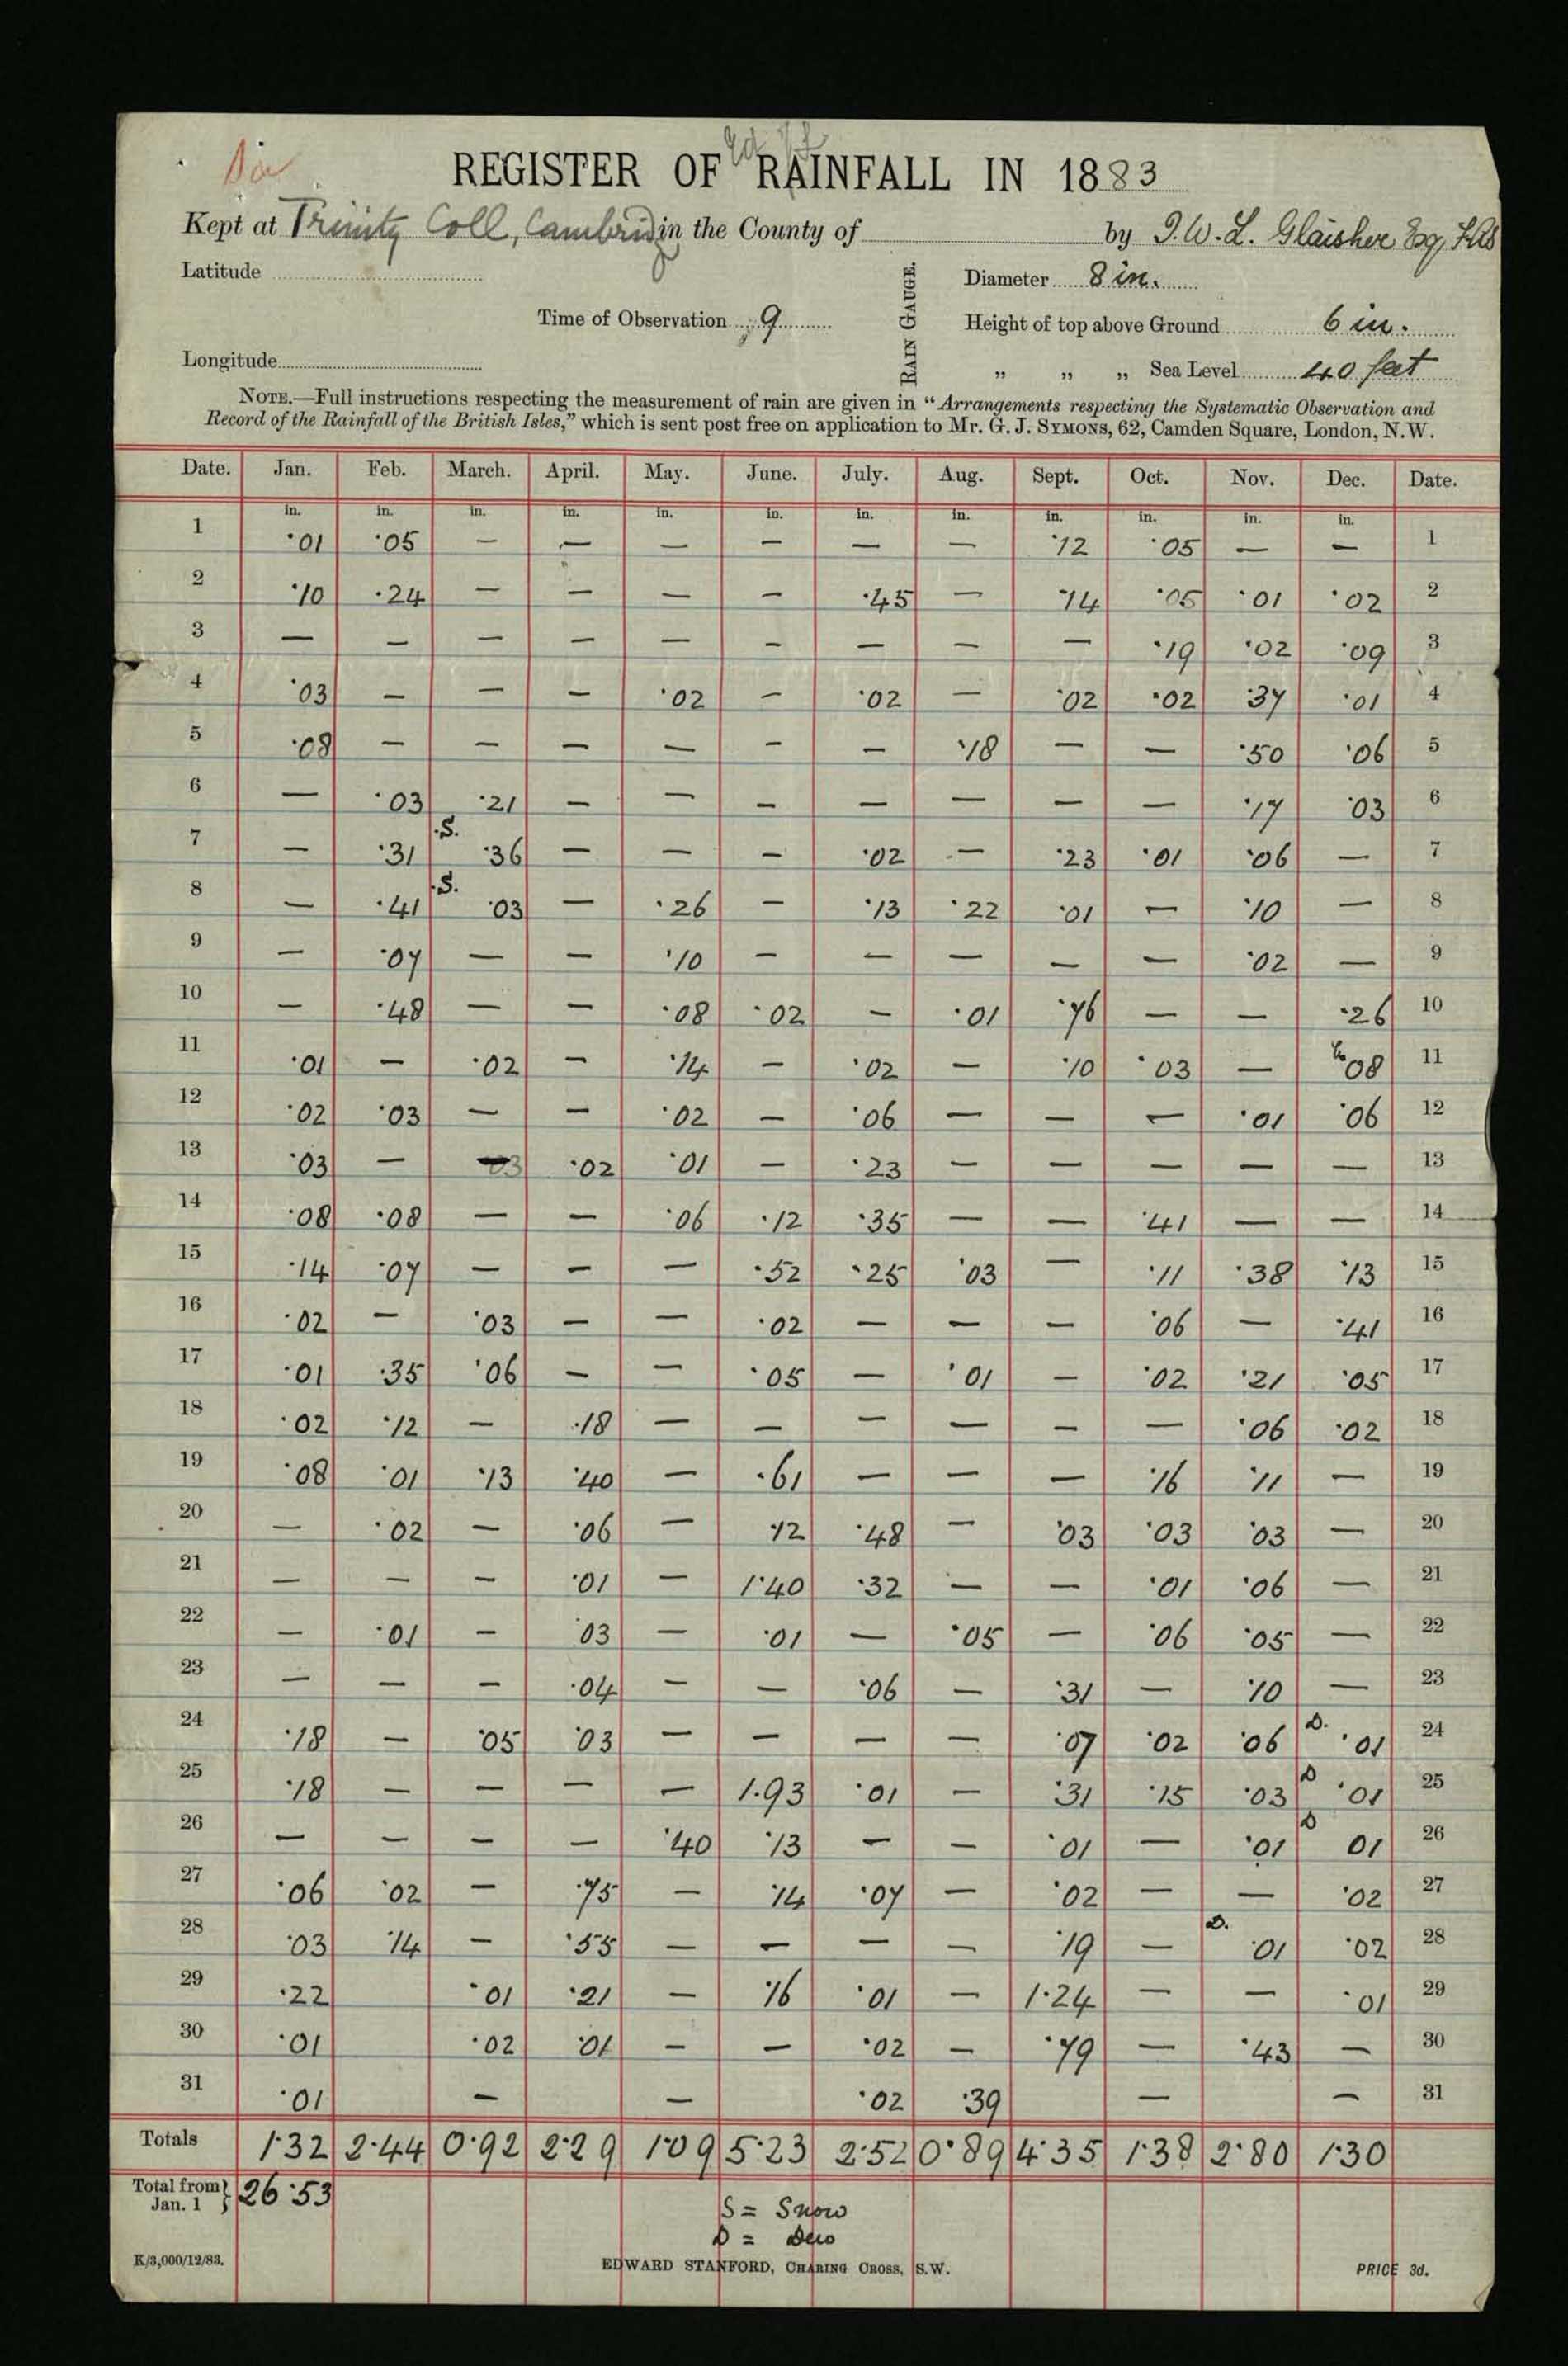 REGISTER OF RAINFALL IN 1883
Kept at Trinity Coll, Cambridge in the County of by J. W. L. Glaisher Esq FRS
Latitude
RAIN GAUGE.
Diameter 8 in.
Time of Observation 9
Height of top above Ground 6 in.
Longitude
" " " Sea Level 40 feet
NOTE.—Full instructions respecting the measurement of rain are given in "Arrangements respecting the Systematic Observation and
Record of the Rainfall of the British Isles," which is sent post free on application to Mr. G. J. SYMONS, 62, Camden Square, London, N.W.
Date. Jan. Feb. March. April. May. June. July. Aug. Sept. Oct. Nov. Dec. Date.
in. in. in. in. in. in. in. in. in. in. in. in.
1 ·01 ·05 — — — — — — ·12 ·05 — — 1
2 ·10 ·24 — — — — ·45 — ·14 ·05 ·01 ·02 2
3 — — — — — — — — — ·19 ·02 ·09 3
4 ·03 — — — ·02 — ·02 — ·02 ·02 ·37 ·01 4
5 ·08 — — — — — — ·18 — — ·50 ·06 5
6 — ·03 ·21 — — — — — — — ·17 ·03 6
7 — ·31 S. ·36 — — — ·02 — ·23 ·01 ·06 — 7
8 — ·41 S. ·03 — ·26 — ·13 ·22 ·01 — ·10 — 8
9 — ·07 — — ·10 — — — — — ·02 — 9
10 — ·48 — — ·08 ·02 — ·01 ·76 — — ·26 10
11 ·01 — ·02 — ·14 — ·02 — ·10 ·03 — ·08 11
12 ·02 ·03 — — ·02 — ·06 — — — ·01 ·06 12
13 ·03 — — ·02 ·01 — ·23 — — — — — 13
14 ·08 ·08 — — ·06 ·12 ·35 — — ·41 — — 14
15 ·14 ·07 — — — ·52 ·25 ·03 — ·11 ·38 ·13 15
16 ·02 — ·03 — — ·02 — — — ·06 — ·41 16
17 ·01 ·35 ·06 — — ·05 — ·01 — ·02 ·21 ·05 17
18 ·02 ·12 — ·18 — — — — — — ·06 ·02 18
19 ·08 ·01 ·13 ·40 — ·61 — — — ·16 ·11 — 19
20 — ·02 — ·06 — ·12 ·48 — ·03 ·03 ·03 — 20
21 — — — ·01 — 1·40 ·32 — — ·01 ·06 — 21
22 — ·01 — ·03 — ·01 — ·05 — ·06 ·05 — 22
23 — — — ·04 — — ·06 — ·31 — ·10 — 23
24 ·18 — ·05 ·03 — — — — ·07 ·02 ·06 D. ·01 24
25 ·18 — — — — 1·93 ·01 — ·31 ·15 ·03 D ·01 25
26 — — — — ·40 ·13 — — ·01 — ·01 D 01 26
27 ·06 ·02 — ·75 — ·14 ·07 — ·02 — — ·02 27
28 ·03 ·14 — ·55 — — — — ·19 — D. ·01 ·02 28
29 ·22 ·01 ·21 — ·16 ·01 — 1·24 — — ·01 29
30 ·01 ·02 ·01 — — ·02 — ·79 — ·43 — 30
31 ·01 — — ·02 ·39 — — 31
Totals 1·32 2·44 0·92 2·29 1·09 5·23 2·52 0·89 4·35 1·38 2·80 1·30
Total from Jan. 1 } 26·53
S = Snow
D = Dew
K/3,000/12/83.
EDWARD STANFORD, CHARING CROSS, S.W.
PRICE 3d.